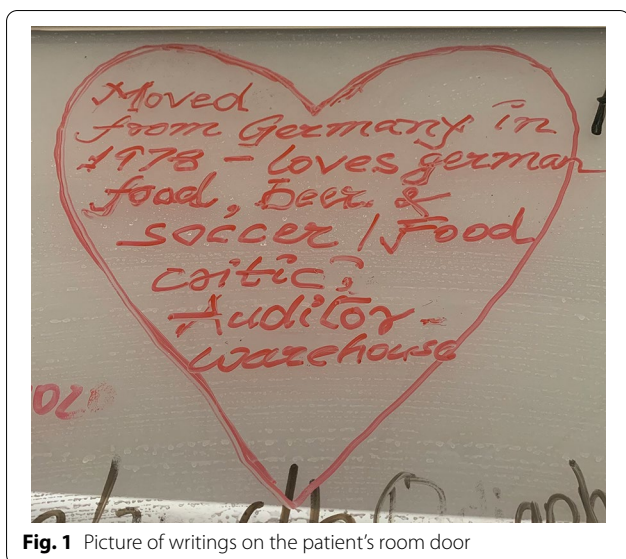 Moved
from Germany in
1978 - loves german
food, beer &
soccer / Food
critic;
Auditor -
warehouse
Fig. 1 Picture of writings on the patient's room door